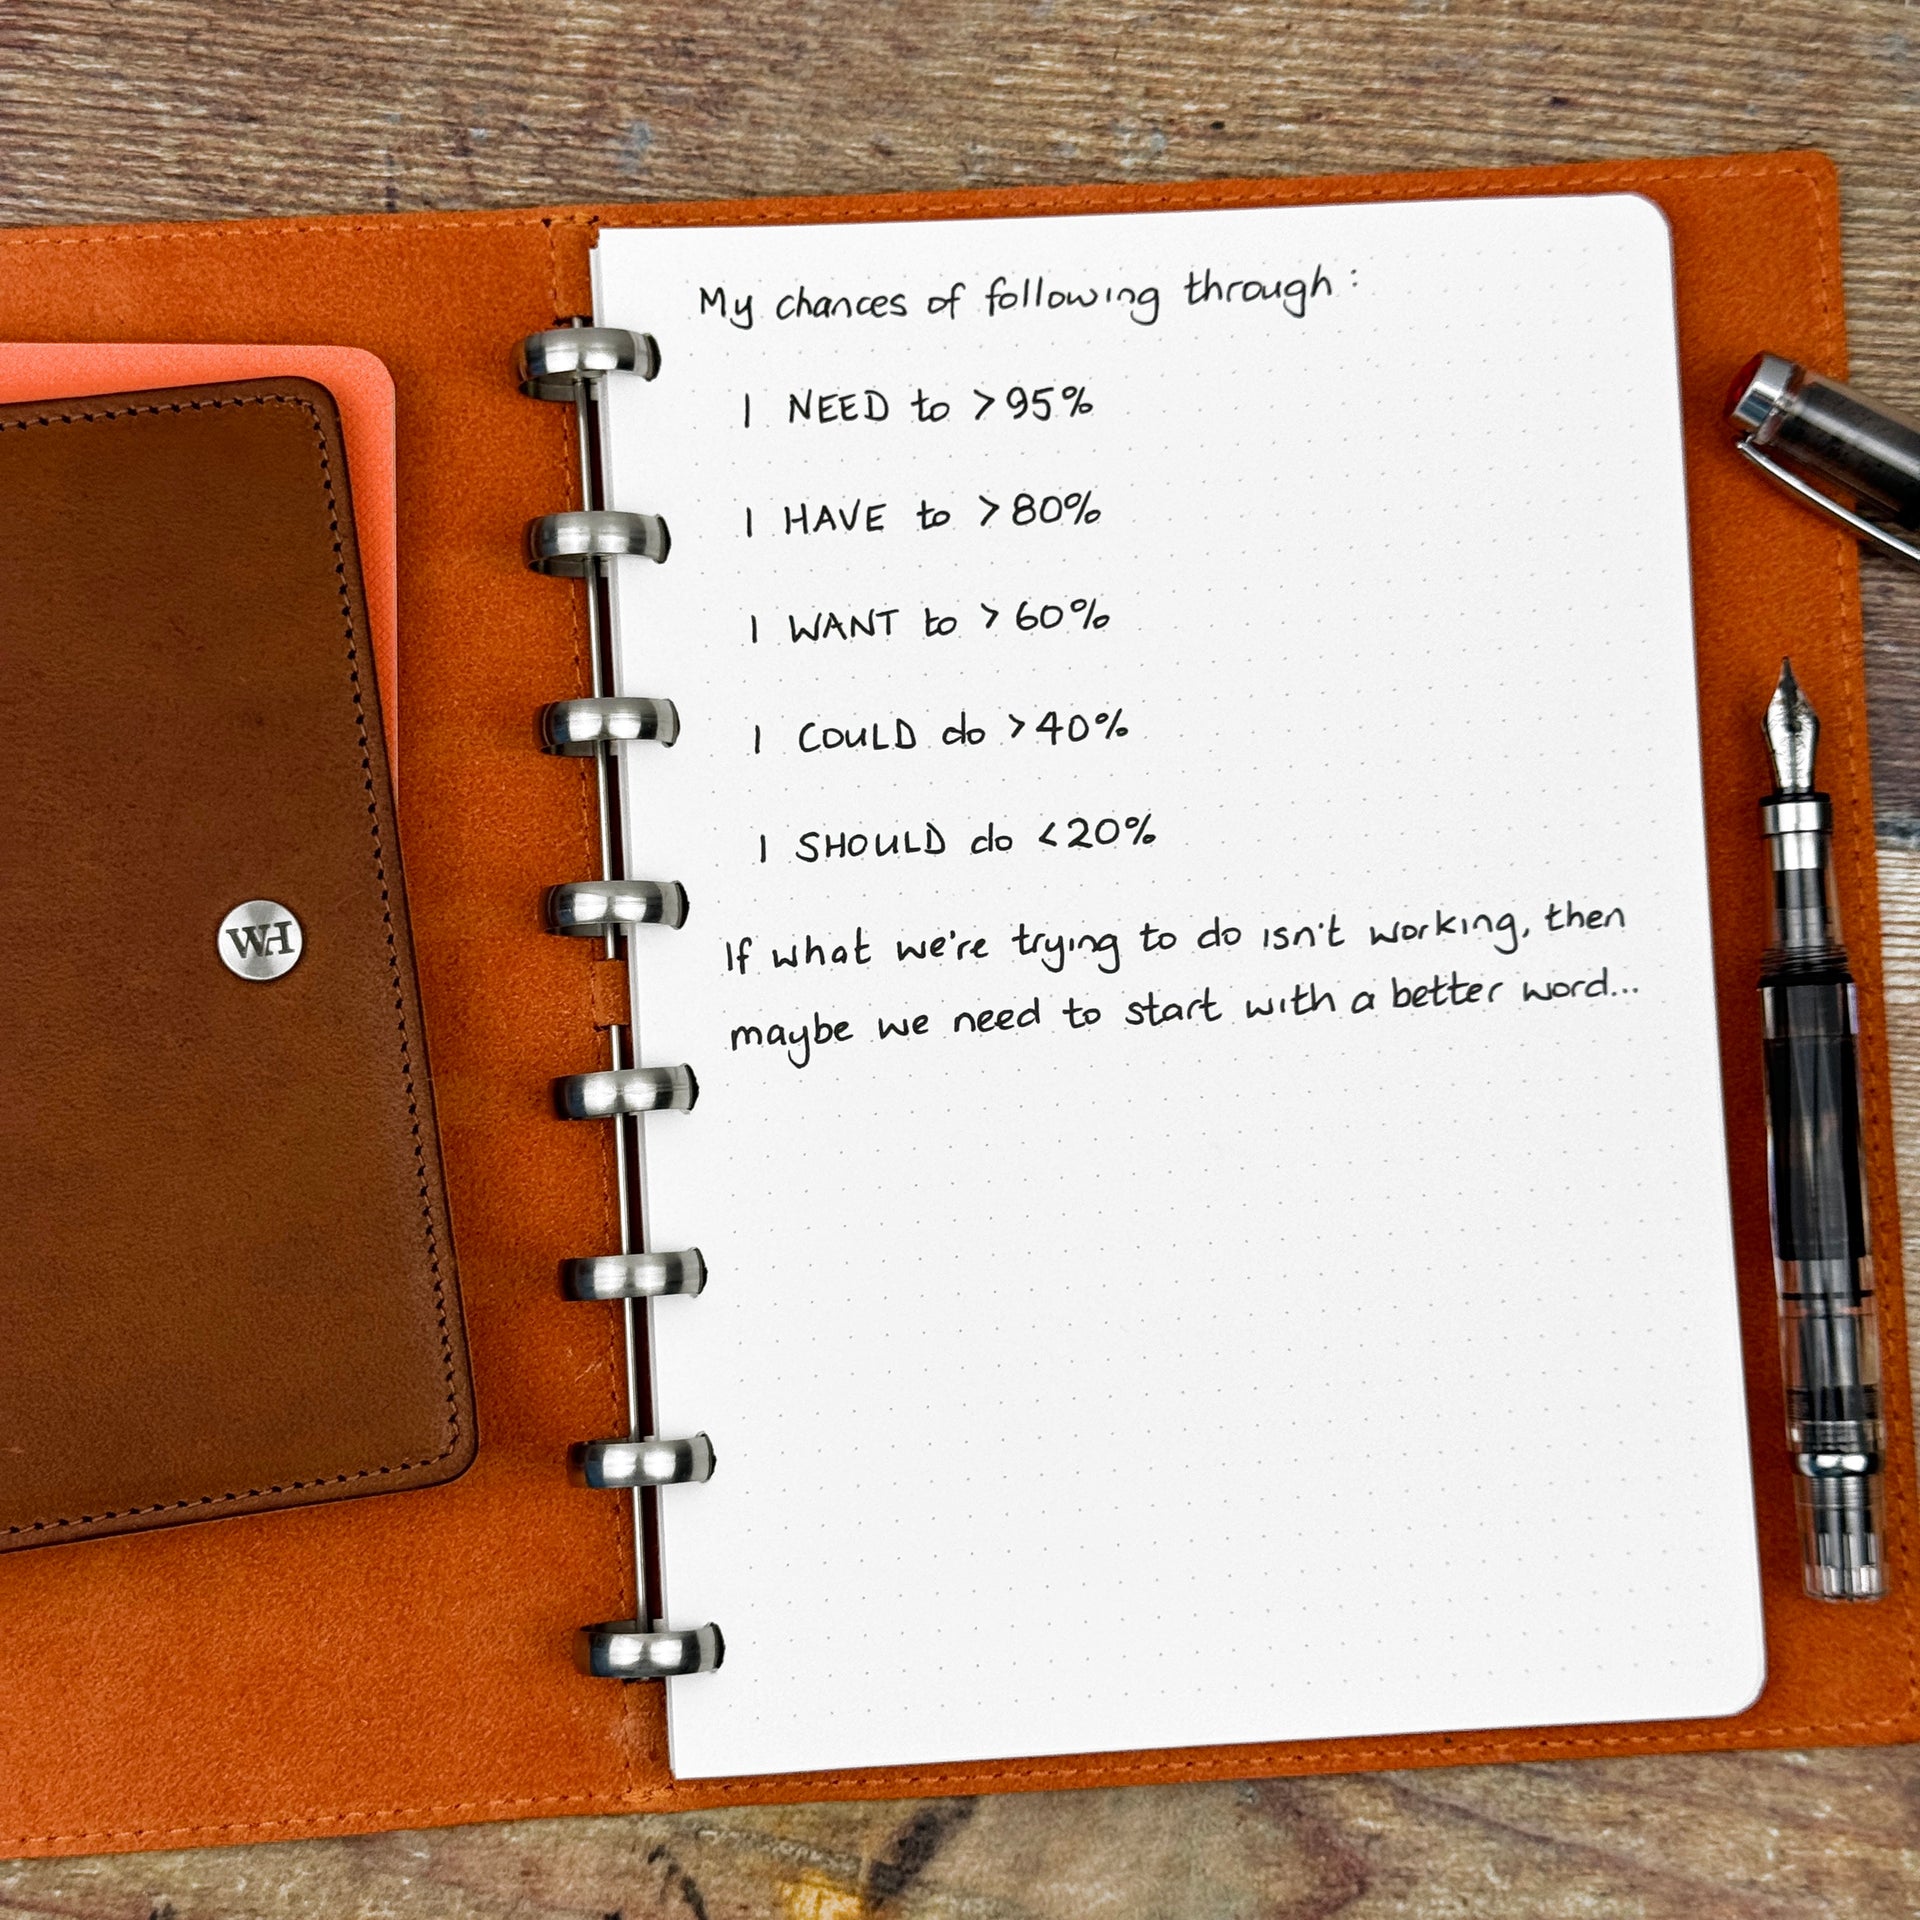 WH
My chances of following through:
I NEED to >95%
I HAVE to >80%
I WANT to >60%
I COULD do >40%
I SHOULD do <20%
If what we're trying to do isn't working, then
maybe we need to start with a better word...